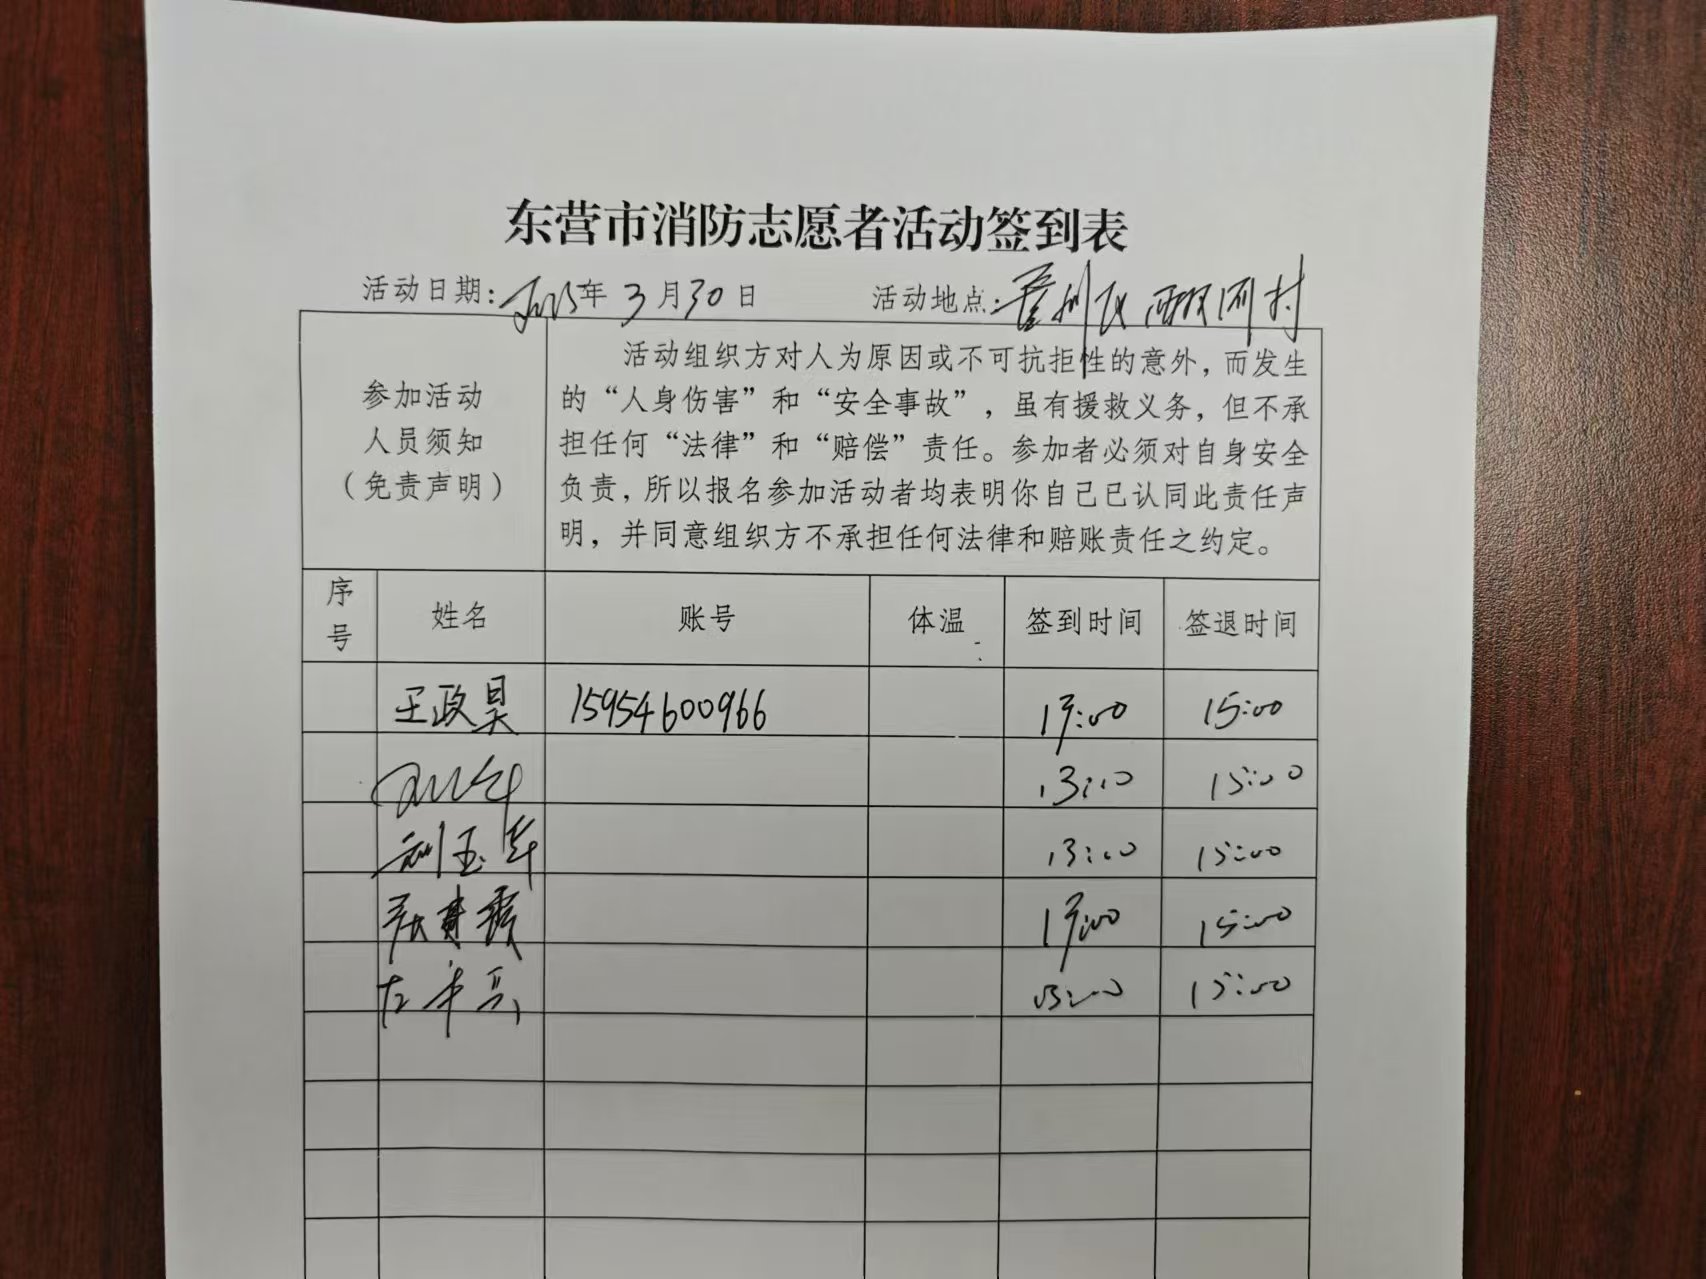 东营市消防志愿者活动签到表
活动日期：2025年3月30日 活动地点：垦利区 河村
参加活动
人员须知
（免责声明）
活动组织方对人为原因或不可抗拒性的意外，而发生
的“人身伤害”和“安全事故”，虽有援救义务，但不承
担任何“法律”和“赔偿”责任。参加者必须对自身安全
负责，所以报名参加活动者均表明你自己已认同此责任声
明，并同意组织方不承担任何法律和赔账责任之约定。
序号 姓名 账号 体温 签到时间 签退时间
王政昊 15954600966 13:00 15:00
13:00 15:00
刘玉华 13:00 15:00
张 霞 13:00 15:00
左 亮 13:00 15:00